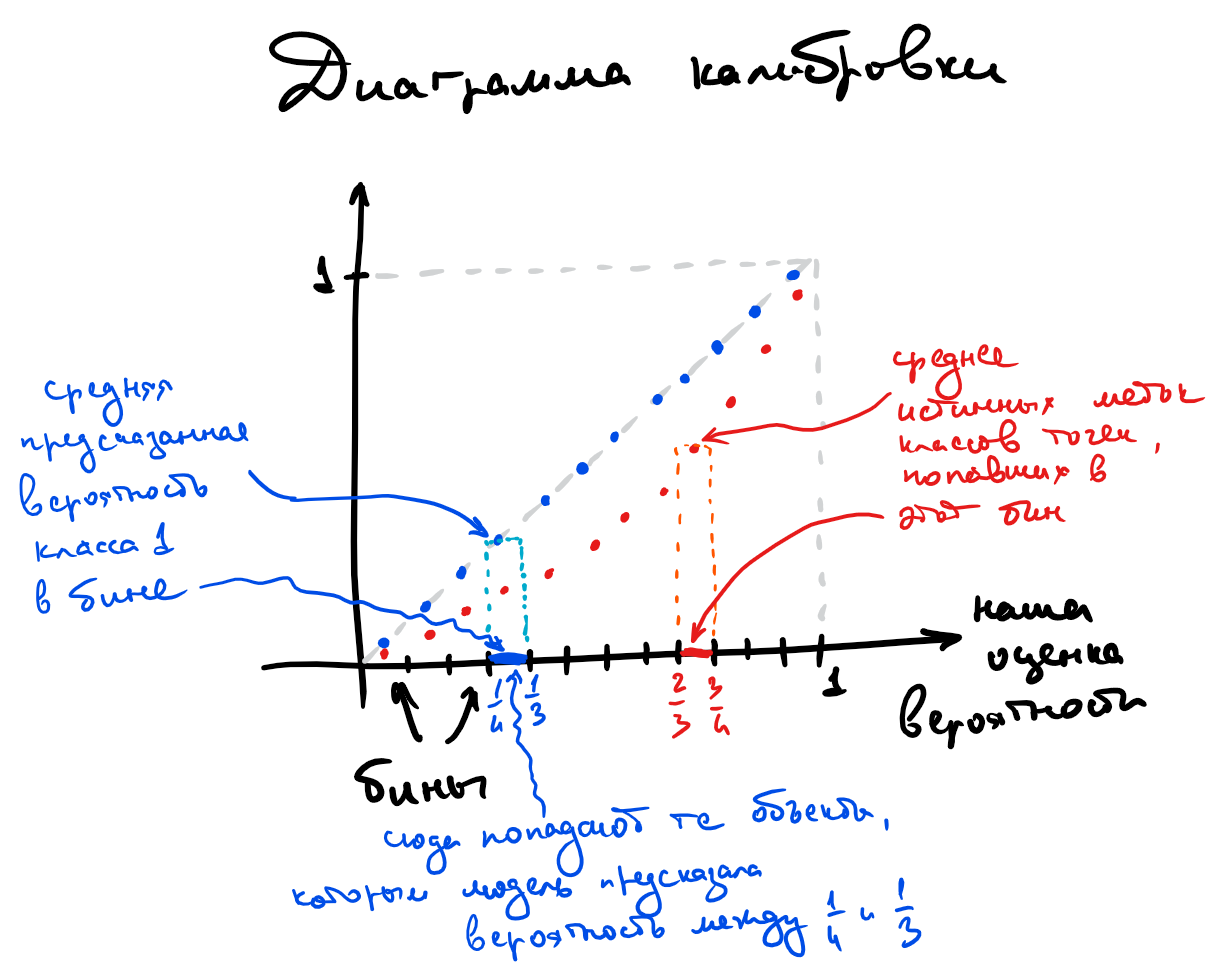 Диаграмма калибровки
1
средняя
предсказанная
вероятность
класса 1
в бине
среднее
истинных меток
классов точек,
попавших в
этот бин
наша
оценка
вероятности
1/4
1/3
2/3
3/4
1
бины
сюда попадают те объекты,
которым модель предсказала
вероятность между 1/4 и 1/3